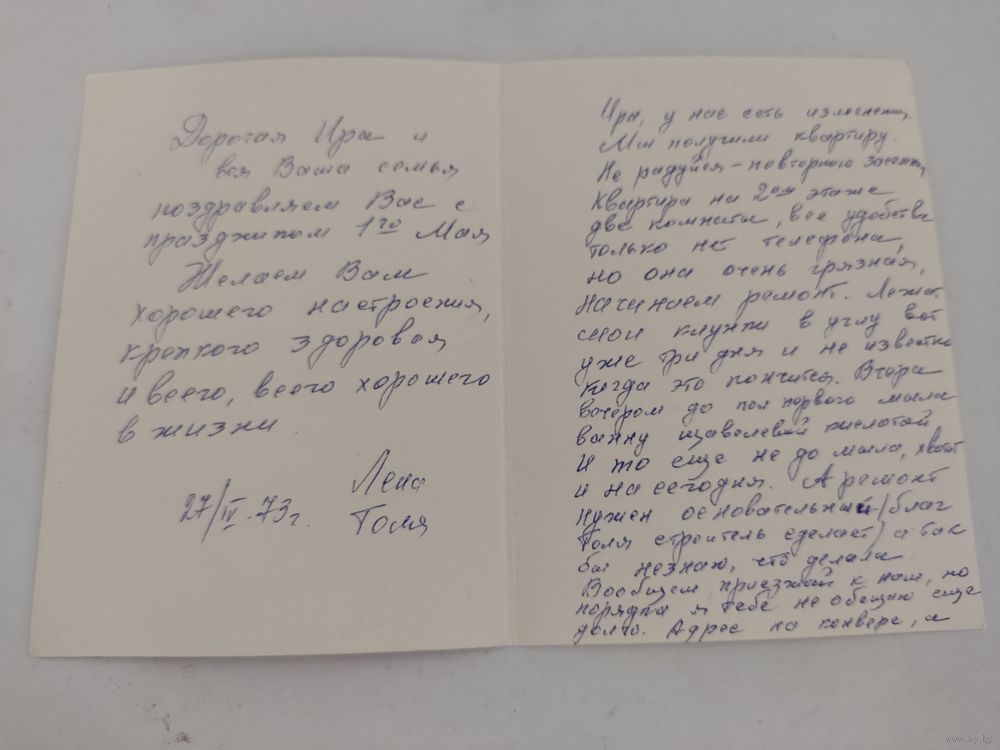 Дорогая Ира и
вся Ваша семья
поздравляем Вас с
праздником 1го Мая
Желаем Вам
хорошего настроения,
крепкого здоровья
и всего, всего хорошего
в жизни.
Лена
27/IV-73г. Толя
Ира, у нас есть изменения,
Мы получили квартиру.
Не радуйся - повторного
Квартира на 2ом этаже
две комнаты, все удобства
только нет телефона,
но она очень грязная,
начинаем ремонт. Лежат
мои в углу вот
уже три дня и не известно
когда это кончится. Вчера
вечером до пол первого мыла
ванну щавелевой кислотой
и то еще не до мыла, хватит
и на сегодня. А ремонт
нужен основательный (благ
Толя строитель сделает) а так
бы незнаю, что делала.
Вообщем приезжай к нам, но
порядка я тебе не обещаю еще
долго. Адрес на конверте, а
www.ay.by